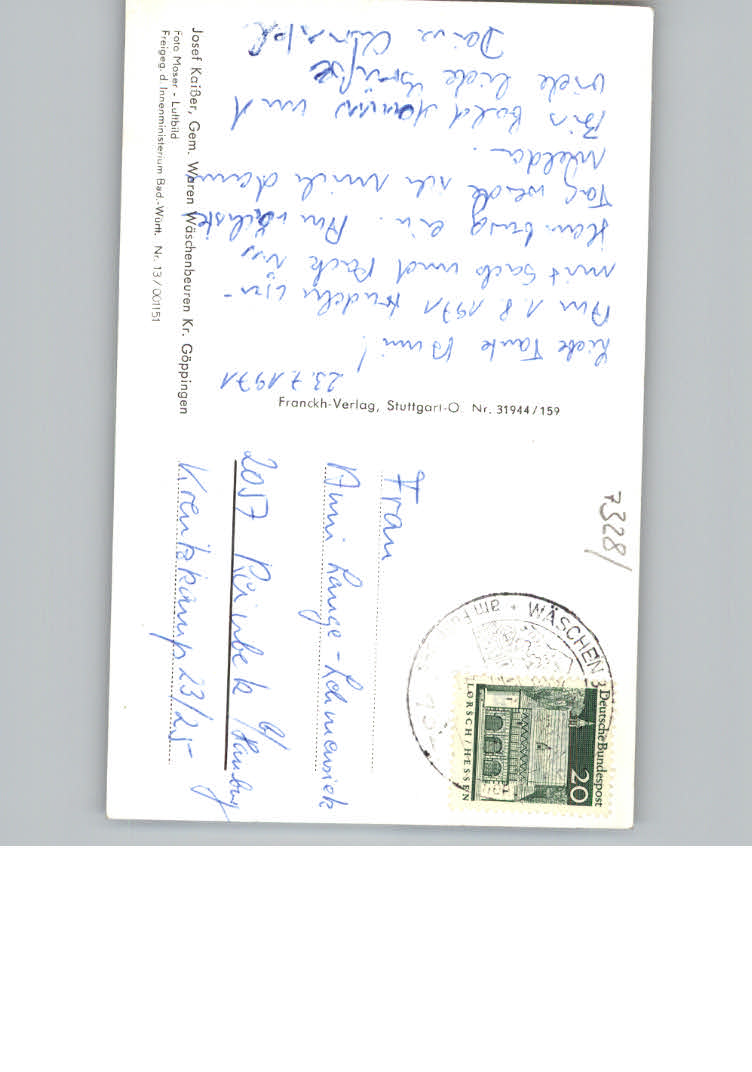 23.7.1971
Liebe Tante Anni!
Am 1.8.1971 trudeln wir
mit Sack und Pack in
Hamburg ein. Am nächsten
Tag werde ich mich dann
melden.
Bis bald dann und
viele liebe Grüße
Deine
Josef Kaißer, Gem. Waren Wäschenbeuren Kr. Göppingen
Foto Moser - Luftbild
Freigeg. d. Innenministerium Bad.-Württ. Nr. 13/001151
Franckh-Verlag, Stuttgart-O. Nr. 31944/159
7328/
WÄSCHEN
Deutsche Bundespost
20
LORSCH/HESSEN
Frau
Anni Lange-
2057 Reinbek b/Hamburg
Kreutzkamp 23/25